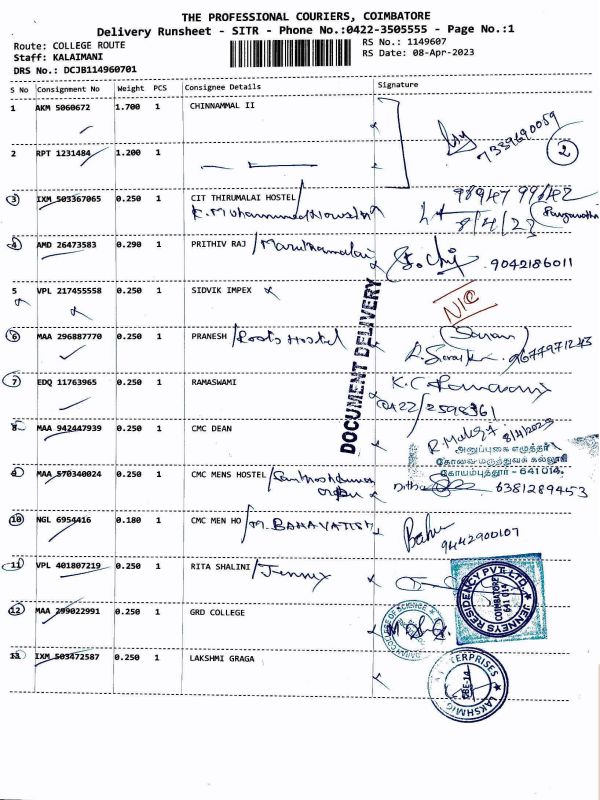 THE PROFESSIONAL COURIERS, COIMBATORE
Delivery Runsheet - SITR - Phone No.:0422-3505555 - Page No.:1
Route: COLLEGE ROUTE
RS No.: 1149607
Staff: KALAIMANI
RS Date: 08-Apr-2023
DRS No.: DCJB114960701
S No Consignment No Weight PCS Consignee Details Signature
1 AKM 5060672 1.700 1 CHINNAMMAL II
7339690059
2 RPT 1231484 1.200 1
2
3 IXM 503367065 0.250 1 CIT THIRUMALAI HOSTEL/
8/4/23
4 AMD 26473583 0.290 1 PRITHIV RAJ /Maruthamalai
9042186011
5 VPL 217455558 0.250 1 SIDVIK IMPEX
N/C
DOCUMENT DELIVERY
6 MAA 296887770 0.250 1 PRANESH /Roots Hostel
9677971243
7 EDQ 11763965 0.250 1 RAMASWAMI
0422/2598361
8 MAA 942447939 0.250 1 CMC DEAN
8/4/2023
அனுப்புகை எழுத்தர்
கோவை மருத்துவக் கல்லூரி
கோயம்புத்தூர் - 641 014.
9 MAA 570340024 0.250 1 CMC MENS HOSTEL/
6381289453
10 NGL 6954416 0.180 1 CMC MEN HO/M. BAHAVATISH
9442900107
11 VPL 401807219 0.250 1 RITA SHALINI /Jennys
JENNEYS RESIDENCY PVT. LTD.
COIMBATORE
641 014
12 MAA 299022991 0.250 1 GRD COLLEGE
COLLEGE OF SCIENCE
13 IXM 503472587 0.250 1 LAKSHMI GRAGA
ENTERPRISES
CBE-14